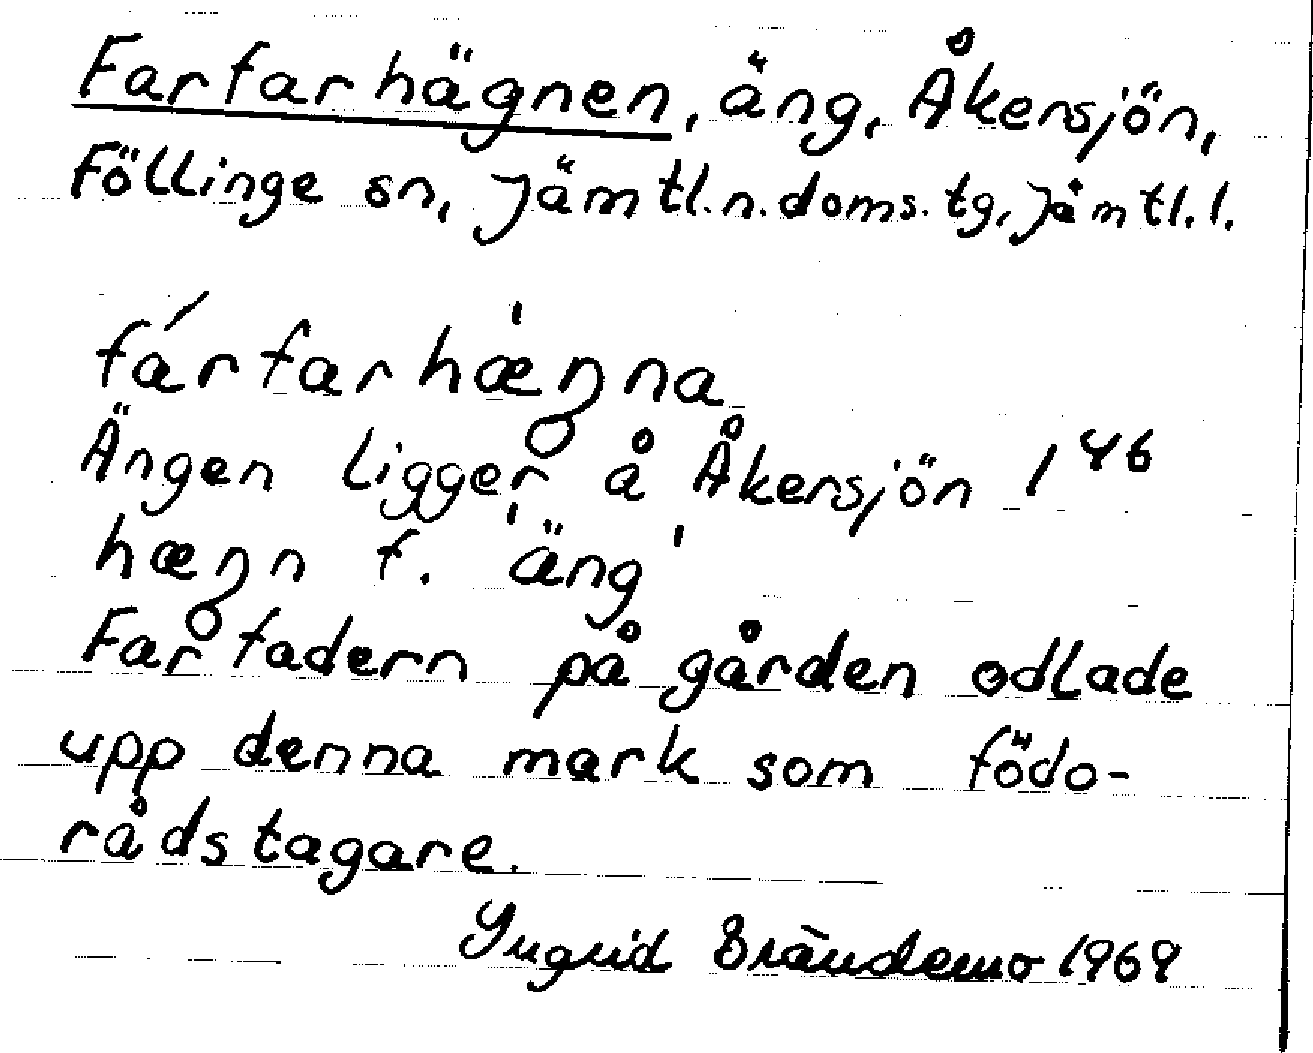 Farfarhägnen, äng, Åkersjön,
Föllinge sn, Jämtl.n.doms.tg, Jämtl.l.
fárfarhæ̍ŋna
Ängen ligger å Åkersjön 1⁴⁶
hæŋn f. 'äng'
Farfadern på gården odlade
upp denna mark som födo-
rådstagare.
Ingrid Brändemo 1969